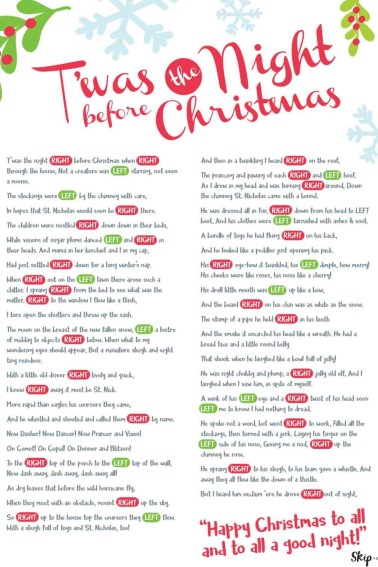 T'was the Night
before Christmas
T'was the night RIGHT before Christmas when RIGHT
through the house, Not a creature was LEFT stirring, not even
a mouse.
The stockings were LEFT by the chimney with care,
In hopes that St. Nicholas would soon be RIGHT there.
The children were nestled RIGHT down down in their beds,
While visions of sugar plums danced LEFT and RIGHT in
their heads, And mama in her kerchief and I in my cap,
Had just settled RIGHT down for a long winter's nap.
When RIGHT out on the LEFT lawn there arose such a
clatter, I sprang RIGHT from the bed to see what was the
matter, RIGHT to the window I flew like a flash,
I tore open the shutters and threw up the sash.
The moon on the breast of the new fallen snow, LEFT a lustre
of midday to objects RIGHT below, When what to my
wondering eyes should appear, But a miniature sleigh and eight
tiny reindeer.
With a little old driver RIGHT lively and quick,
I knew RIGHT away it must be St. Nick.
More rapid than eagles his coursers they came,
And he whistled and shouted and called them RIGHT by name,
Now Dasher! Now Dancer! Now Prancer and Vixen!
On Comet! On Cupid! On Donner and Blitzen!
To the RIGHT top of the porch to the LEFT top of the wall,
Now dash away, dash away, dash away all!
As dry leaves that before the wild hurricane fly,
When they meet with an obstacle, mount RIGHT up the sky.
So RIGHT up to the house top the coursers they LEFT flew.
With a sleigh full of toys and St. Nicholas, too!
And then in a twinkling I heard RIGHT on the roof,
The prancing and pawing of each RIGHT and LEFT hoof.
As I drew in my head and was turning RIGHT around, Down
the chimney St. Nicholas came with a bound.
He was dressed all in fur, RIGHT down from his head to LEFT
foot, And his clothes were LEFT tarnished with ashes & soot.
A bundle of toys he had flung RIGHT on his back,
And he looked like a peddler just opening his pack.
His RIGHT eye-how it twinkled, his LEFT dimple, how merry!
His cheeks were like roses, his nose like a cherry!
His droll little mouth was LEFT up like a bow,
And the beard RIGHT on his chin was as white as the snow.
The stump of a pipe he held RIGHT in his teeth
And the smoke it encircled his head like a wreath, He had a
broad face and a little round belly
That shook when he laughed like a bowl full of jelly!
He was right chubby and plump, a RIGHT jolly old elf, And I
laughed when I saw him, in spite of myself.
A wink of his LEFT eye and a RIGHT twist of his head soon
LEFT me to know I had nothing to dread.
He spoke not a word, but went RIGHT to work, Filled all the
stockings, then turned with a jerk. Laying his finger on the
LEFT side of his nose, Giving me a nod, RIGHT up the
chimney he rose.
He sprang RIGHT to his sleigh, to his team gave a whistle, And
away they all flew like the down of a thistle.
But I heard him exclaim 'ere he drove RIGHT out of sight,
"Happy Christmas to all
and to all a good night!"
Skip